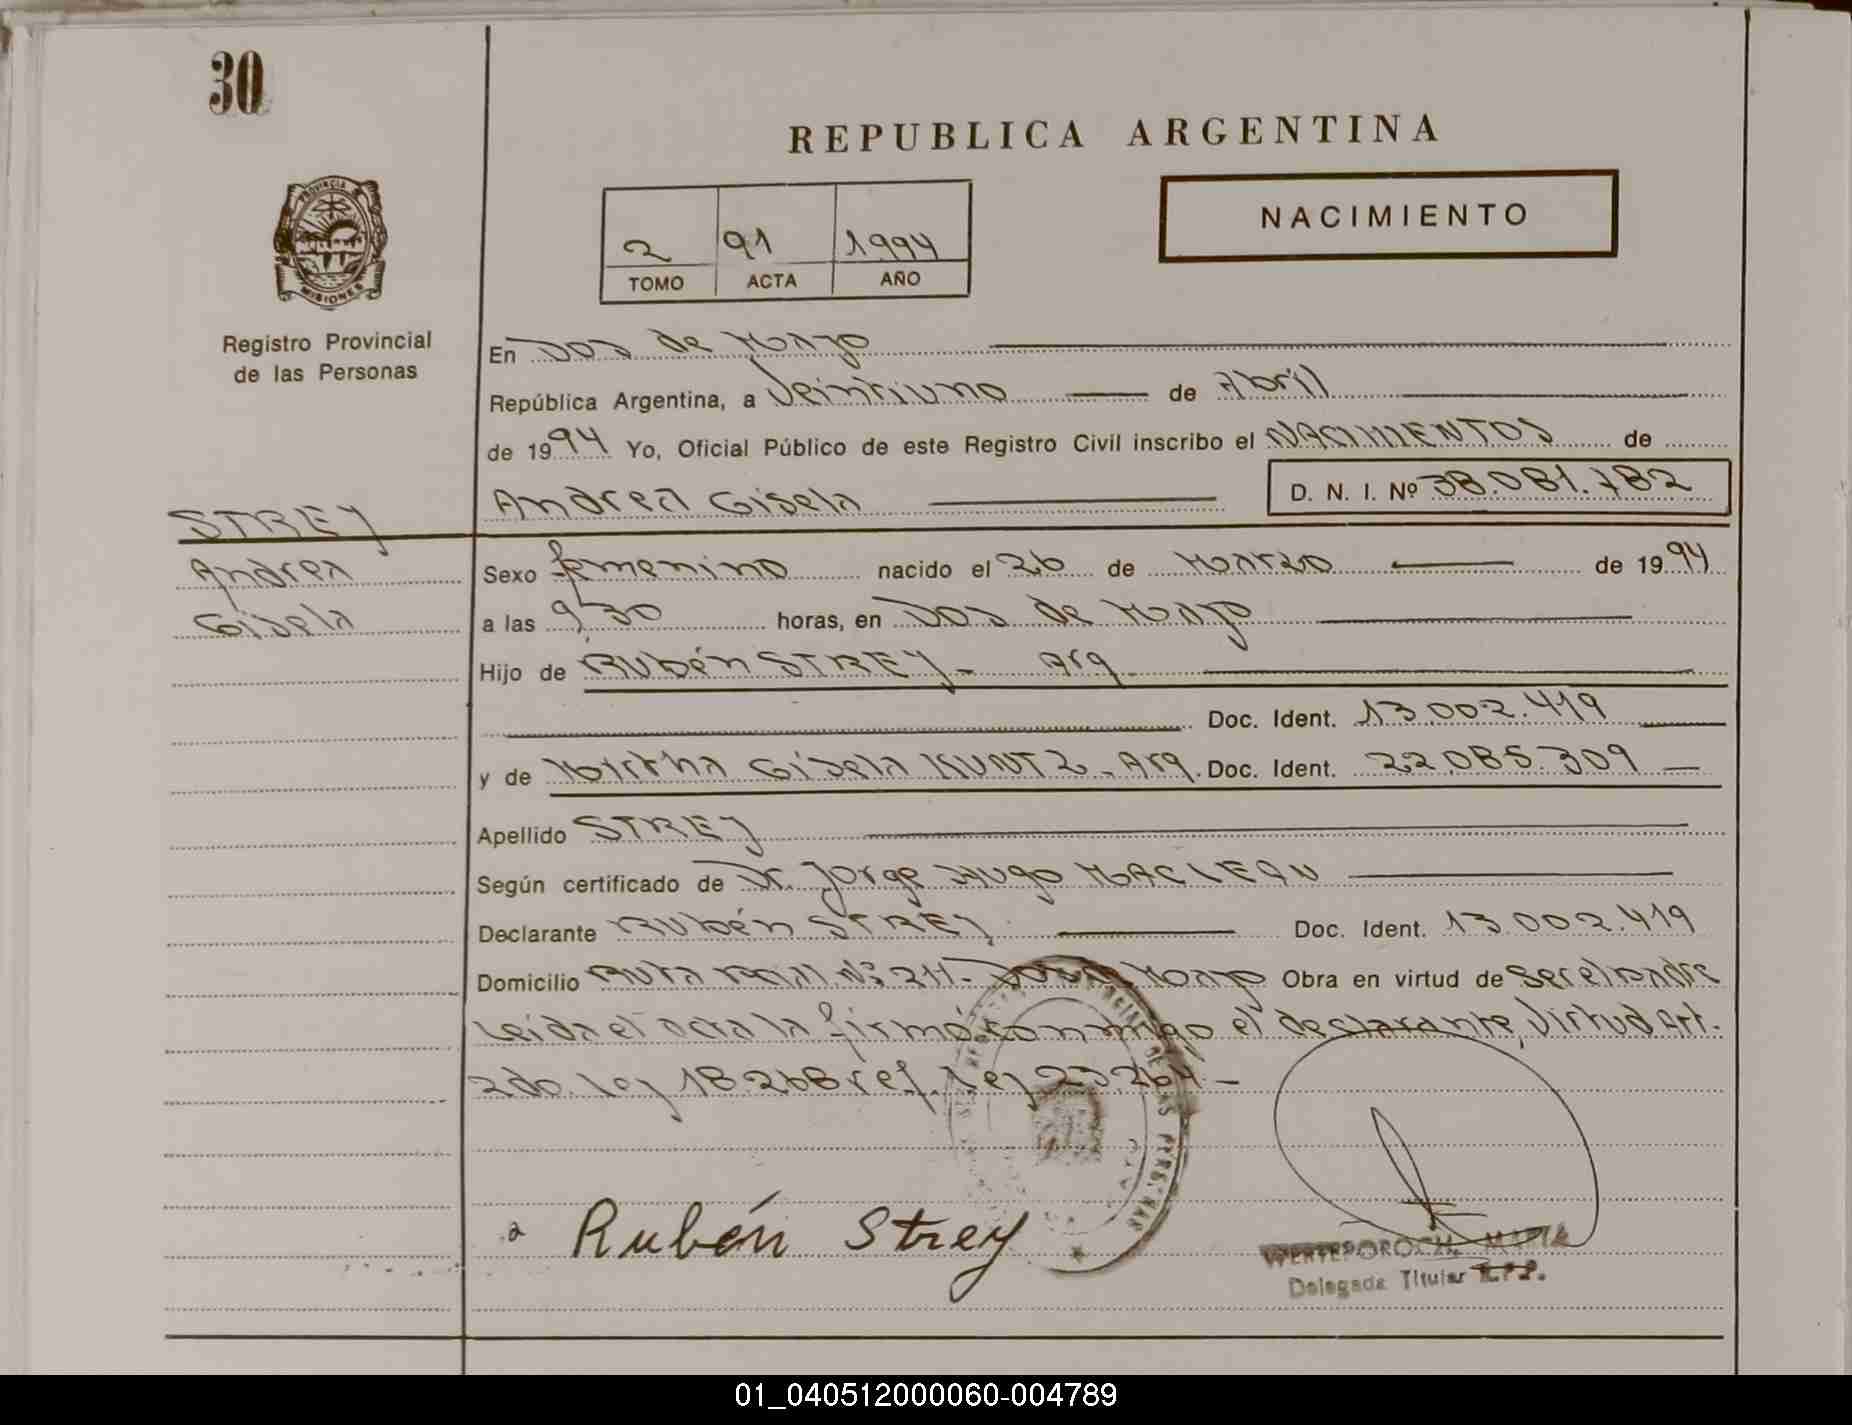 30
REPUBLICA ARGENTINA
PROVINCIA DE
MISIONES
Registro Provincial
de las Personas
NACIMIENTO
2 91 1994
TOMO ACTA AÑO
En Dos de Mayo
República Argentina, a Veintiuno de Abril
de 1994 Yo, Oficial Público de este Registro Civil inscribo el NACIMIENTOS de
Andrea Gisela D. N. I. Nº 38.081.782
STREY
Andrea
Gisela
Sexo femenino nacido el 26 de Marzo de 1994
a las 9,30 horas, en Dos de Mayo
Hijo de Rubén STREY - Arg.
Doc. Ident. 13.002.419
y de Mirtha Gisela KUNTZ - Arg. Doc. Ident. 22.085.309
Apellido STREY
Según certificado de Dr. Jorge Hugo MACLEAN
Declarante Rubén STREY Doc. Ident. 13.002.419
Domicilio Ruta Nº 211 - Dos de Mayo Obra en virtud de ser el padre
Leida el acta la firmó conmigo el declarante, Virtud Art.
2do. ley 18.268 ref. ley 23.264. -
Rubén Strey
WERTEPOROCH, MARIA
Delegada Titular R.P.P.
01_040512000060-004789